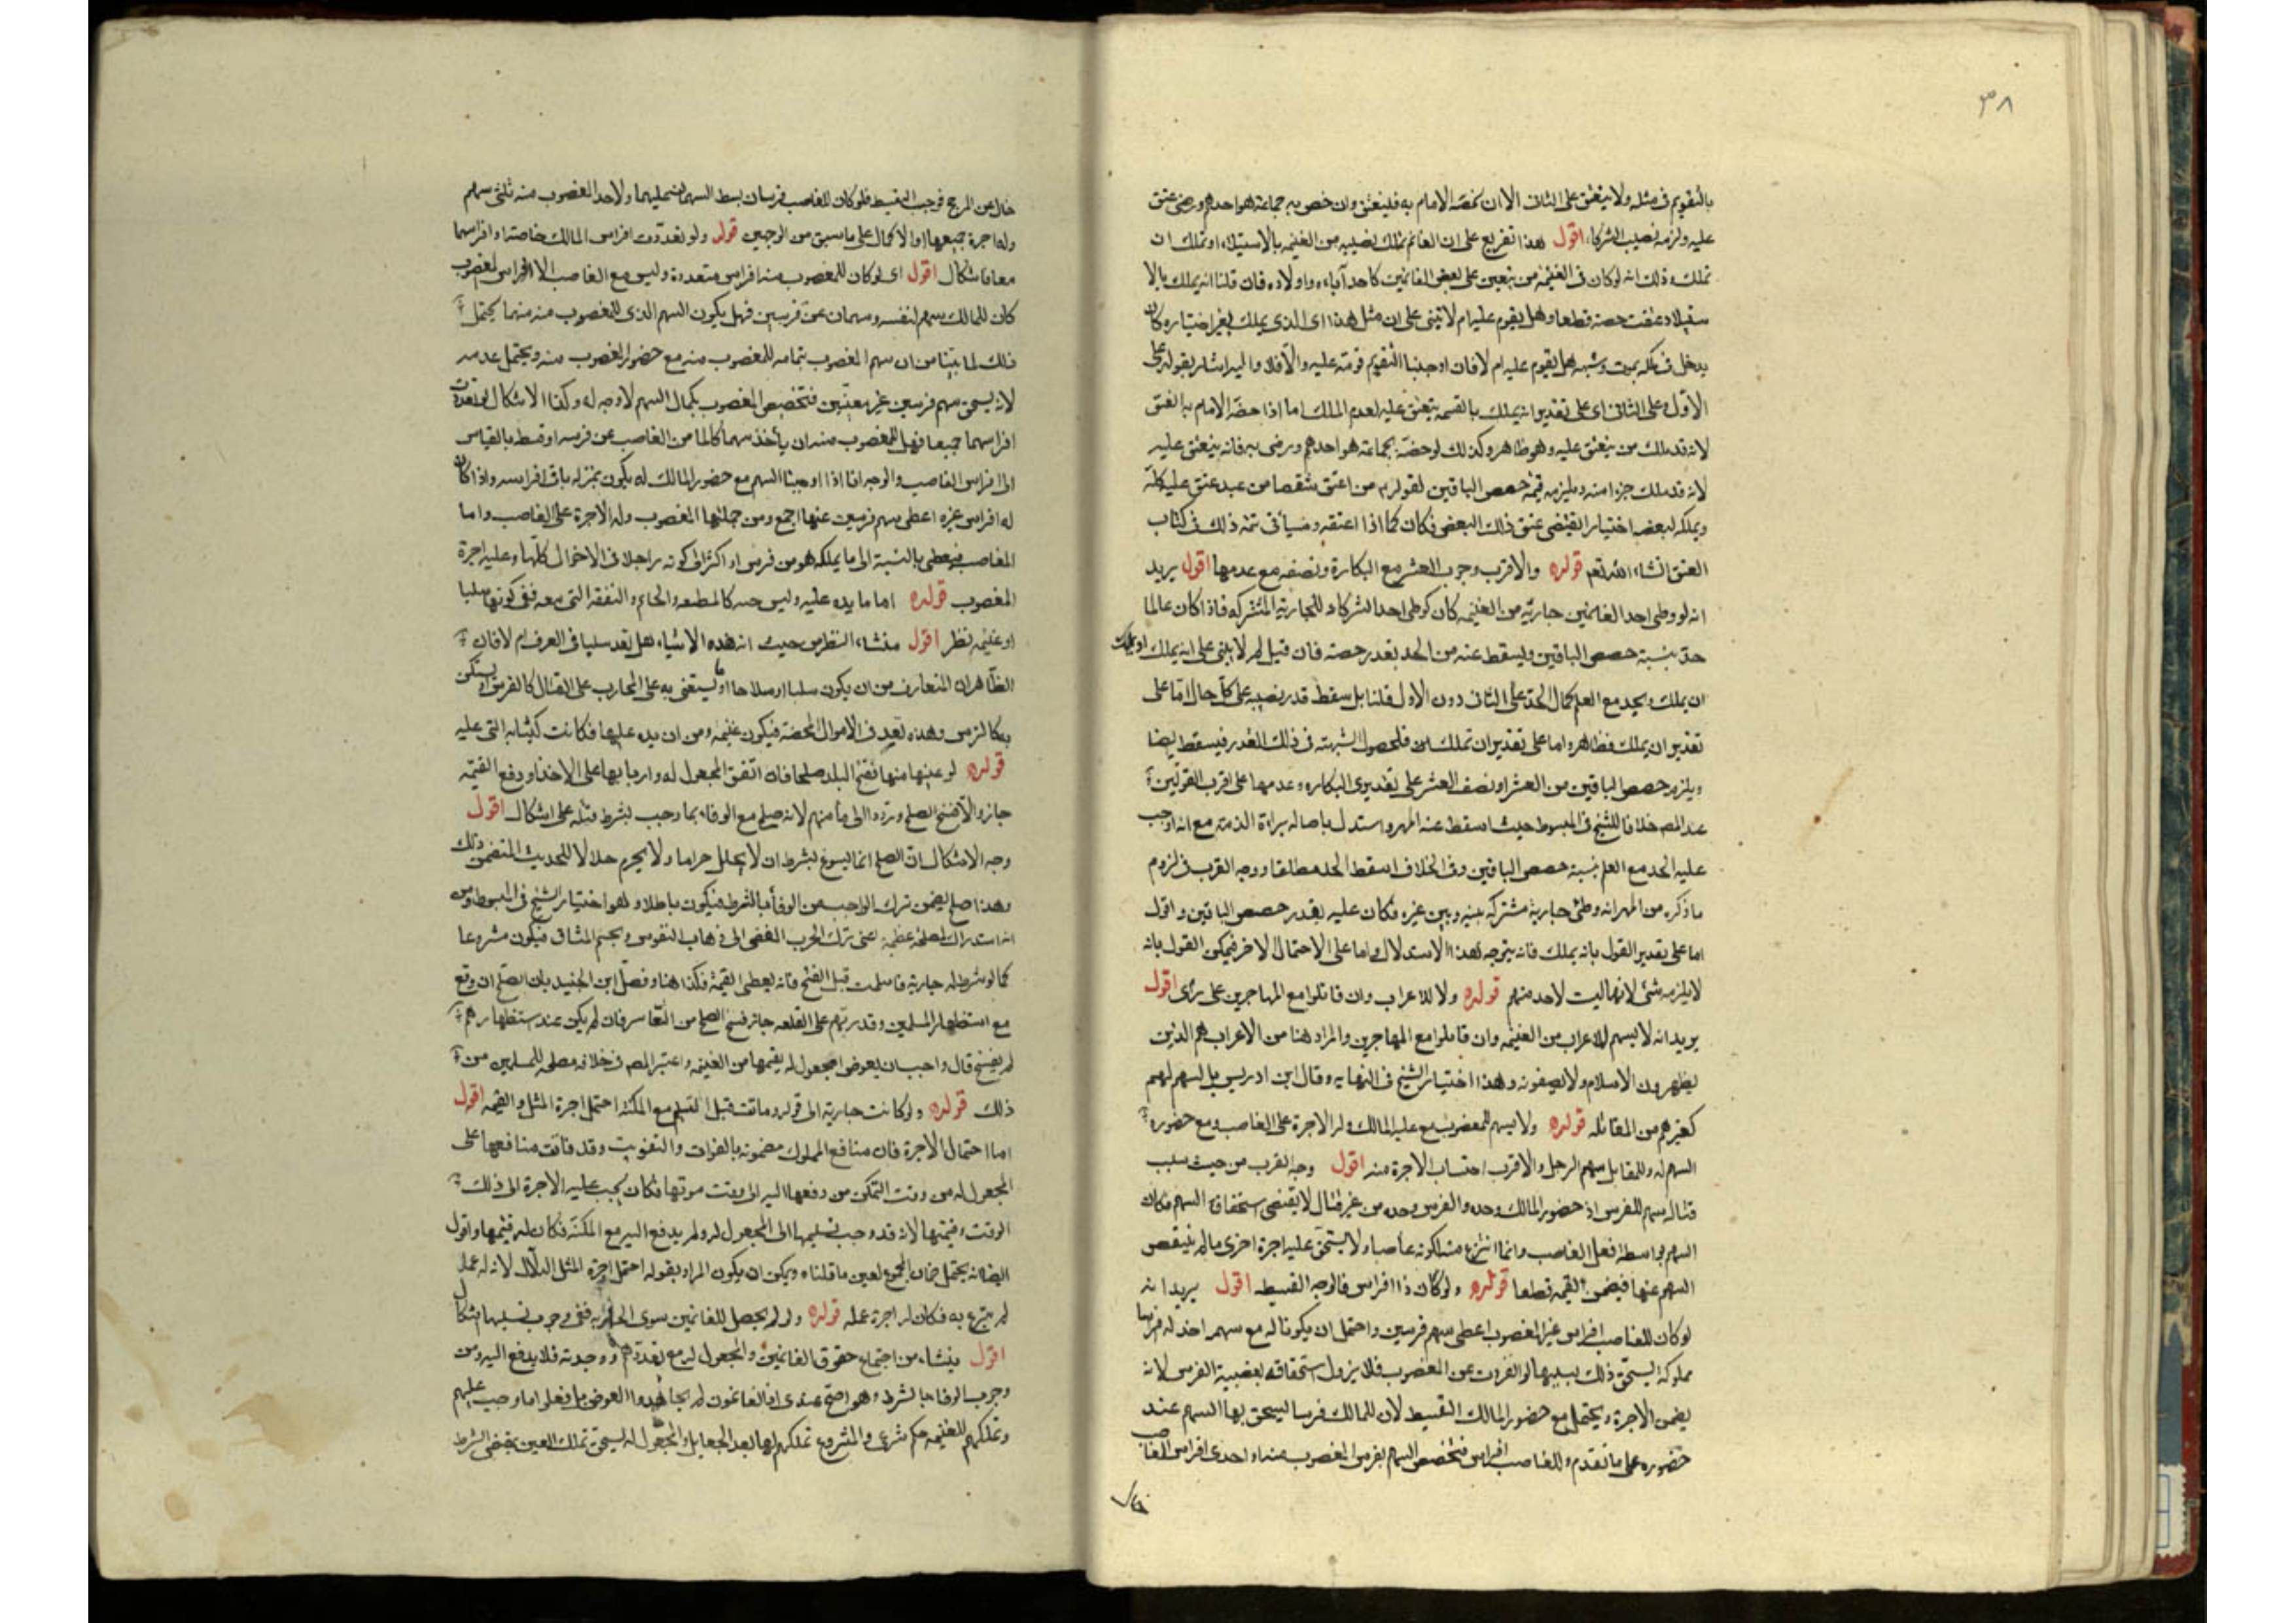 ٣٨
بالتقويم في مثله ولا ينعتق على الثاني الا ان يخصه الامام به فينعتق وان خص به جماعة هو احدهم ورضى عتق
عليه ولزمه نصيب الشركاء اقول هذا تفريع على ان الغانم يملك نصيبه من الغنيمه بالاستيلاء او تملك ان
تملك وذلك انه لو كان في الغنيمة من ينعتق على بعض الغانمين كاحد آباءه واولاده فان قلنا انه يملك بالا
ستيلاء عتقت حصته قطعا وهل يقوم عليه ام لا يبنى على ان مثل هذا اى الذى يملك بغير اختياره كان
يدخل في ملكه بميت وشبهه هل يقوم عليه ام لا فان اوجبنا التقويم قومته عليه والا فلا واليه اشار بقوله على
الاول وعلى الثاني اى على تقدير انه يملك بالقسمه ينعتق عليه لعدم الملك اما اذا خصه الامام به العتق
لانه قد ملك من ينعتق عليه وهو ظاهر وكذلك لو خصه بجماعة هو احدهم ورضى به فانه ينعتق عليه
لانه قد ملك جزءا منه ويلزمه قيمة حصص الباقين لقولهم من اعتق شقصا من عبد عتق عليه كله
ويملكه لبعضه اختيارا يقتضى عتق ذلك البعض فكان كما اذا اعتقه وسيأتى تتمه ذلك في كتاب
العتق انشاء الله تعم قوله والاقرب وجوب العشر مع البكارة ونصفه مع عدمها اقول يريد
انه لو وطى احد الغانمين جارية من الغنيمه كان كوطى احد الشركاء للجارية المشتركه فاذا كان عالما
حد بنسبة حصص الباقين ويسقط عنه من الحد بقدر حصته فان قيل لم لا يبنى على انه يملك او يملك
ان يملك ويحد مع العلم كمال الحد على الثاني دون الاول قلنا بل سقط قدر نصيبه على كل حال اما على
تقدير ان يملك فظاهر واما على تقدير ان تملك ان فلحصول الشبهة في ذلك القدر فيسقط ايضا
ويلزمه حصص الباقين من العشر او نصف العشر على تقديرى البكاره وعدمها على اقرب القولين
عند المصه خلافا للشيخ في المبسوط حيث اسقط عنه المهر واستدل باصاله براءة الذمة مع انه اوجب
عليه الحد مع العلم بنسبة حصص الباقين وفي الخلاف اسقط الحد مطلقا ووجه القرب في لزوم
ما ذكره من المهر انه وطئ جارية مشتركه بينه وبين غيره فكان عليه بقدر حصص الباقين واقول
اما على تقدير القول بانه يملك فانه يتوجه لهذا الاستدلال واما على الاحتمال الاخر فيمكن القول بانه
لا يلزمه شئ لانها ليت لاحد منهم قوله ولا للاعراب وان قاتلوا مع المهاجرين على رأى اقول
يريد انه لا يسهم للاعراب من الغنيمه وان قاتلوا مع المهاجرين والمراد هنا من الاعراب هم الذين
يظهرون الاسلام ولا يصفونه وهذا اختيار الشيخ في النهايه وقال ابن ادريس بل يسهم لهم
كغيرهم من المقاتله قوله ولا يسهم للمغصوب مع غيبة المالك وله الاجرة على الغاصب ومع حضوره
السهم له وللمقاتل سهم الرجل والاقرب احتساب الاجرة منه اقول وجه القرب من حيث سبب
قتاله سهم للفرس اذ حضور المالك وحده والفرس وحده من غير قتال لا يقتضى استحقاق السهم فكان
السهم بواسطة فعل الغاصب وانما انتزع منه لكونه غاصبا ولا يستحق عليه اجرة اخرى ما لم ينقص
السهم عنها فيضمن القيمه قطعا قوله ولو كان ذا افراس فالوجه التقسيط اقول يريد انه
لو كان للغاصب افراس غير المغصوب اعطى سهم فرسين واحتمل ان يكونا له مع سهم اخذ له
مملوكة ليستحق ذلك بسببها
يضمن الاجرة ويحتمل مع حضور المالك التقسيط لان للمالك فرسا يستحق بها السهم عند
حضوره على ما تقدم وللغاصب افراس فتخصص السهم بفرس المغصوب منه او احدى افراس الغاصب
خال عن المرجح فوجب التقسيط فلو كان للغاصب فرسان بسط السهمان عليها ولاحد المغصوب منه ثلثى سهم
وله اجرة جميعها او الاكمال على ما سبق من الوجهين قوله ولو تعددت افراس المالك خاصة او افراسهما
معا فاشكال اقول اى لو كان للمغصوب منه افراس متعددة وليس مع الغاصب الا الفراس المغصوب
كان للمالك سهم لنفسه وسهمان عن فرسين فهل يكون السهم الذى للمغصوب منه منهما يحتمل
ذلك لما بينا من ان سهم المغصوب بتمامه للمغصوب منه مع حضور المغصوب منه ويحتمل عدمه
لانه يستحق سهم فرسين غير معينين فتخصيص المغصوب بكمال السهم لا وجه له وكذا الاشكال لو تعددت
افراسهما جميعا فهل للمغصوب منه ان يأخذ سهما كاملا من الغاصب عن فرسه او قسط بالقياس
الى افراس الغاصب والوجه انا اذا اوجبنا السهم مع حضور المالك له يكون بمنزله باقى افراسه واذا كان
له افراس غيره اعطى سهم فرسين عنها اجمع ومن جملتها المغصوب وله الاجرة على الغاصب واما
الغاصب فيعطى بالنسبة الى ما يملكه هو من فرس او اكثر الى كونه راجلا في الاحوال كلها وعليه اجرة
المغصوب قوله اما ما يده عليه وليس جنه كالمنطقه والخاتم والنفقه التى معه ففى كونها سلبا
او غنيمه نظر اقول منشاء النظر من حيث ان هذه الاشياء هل تعد سلبا في العرف ام لا فان
الظاهر ان المتعارف من ان يكون سلبا او سلاحا او ما يستعنى به على المحارب على القتال كالفرس او يستكن
به كالترس وهذه تعد في الاموال المحضة فيكون غنيمه ومن ان يده عليها فكانت كثيابه التى عليه
قوله لو عينها منها ففتح البلد صلحا فان اتفق المجعول له واربابها على الاخذ او دفع القيمة
جاز والا فسخ الصلح وتردوا الى مأمنهم لانه صلح مع الوفاء بما وجب بشرط قبله على اشكال اقول
وجه الاشكال ان الصلح انما يسوغ بشرط ان لا يحلل حراما ولا يحرم حلالا للحديث المتضمن ذلك
وهذا صلح يضمن ترك الواجب من الوفاء بالشرط فيكون باطلا وهو اختيار الشيخ في المبسوط ومن
انه استدراك لمصلحة عظيمة اعنى ترك الحرب المفضى الى ذهاب النفوس وتجشم المشاق فيكون مشروعا
كما لو شرط له جارية فاسلمت قبل الفتح فانه يعطى القيمة فكذا هنا وفصل ابن الجنيد بان الصلح ان وقع
مع استظهار المسلمين وقدرتهم على القلعه جاز فسخ الصلح من فان لم يكن عند استظهارهم
لم يفسخ قال واحب ان يعوض المجعول له بقيمها من الغنيمه واعتبر المصه في خلافه مصلحه للمسلمين من
ذلك قوله ولو كانت جارية الى قوله وماتت قبل التسليم مع المكنه احتمل اجرة المثل والقيمه اقول
اما احتمال الاجرة فان منافع المملوك مضمونة بالفوات والتفويت وقد فاتت منافعها على
المجعول له من وقت التمكن من دفعها اليه الى وقت موتها فكان يجب عليه الاجرة الى ذلك
الوقت وقيمتها لانه قد وجب تسليمها الى المجعول له ولم يدفع اليه مع المكنة فكان له قيمتها واقول
ايضا انه يحتمل ضمان المجموع لعين ما قلناه ويمكن ان يكون المراد بقوله احتمل اجرة المثل الدلال لانه له عمل
لم يتبرع به فكان له اجرة عمله قوله ولو لم يحصل للغانمين سوى الجارية ففى وجوب تسليمها اشكال
اقول ينشاء من اجتماع حقوق الغانمين والمجعول له مع تعددهم ووحدته فلا يدفع اليه ومن
وجوب الوفاء بالشرط وهو اصح عندى اذ الغانمون لم يجاهدوا العوض بل فعلوا ما وجب عليهم
وتملكهم للغنيمه حكم شرعى والمشروع تملكهم لها بعد الجعايل والمجعول له يستحق تملك العين بمقتضى الشرط